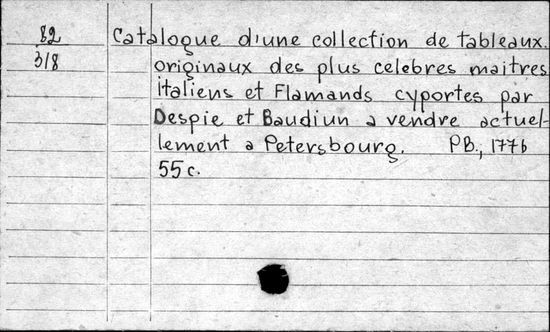 82 Catalogue d'une collection de tableaux.
318 originaux des plus celebres maitres
italiens et Flamands cyportes par
Despie et Baudiun a vendre actuel-
lement a Petersbourg. PB., 1776
55 c.